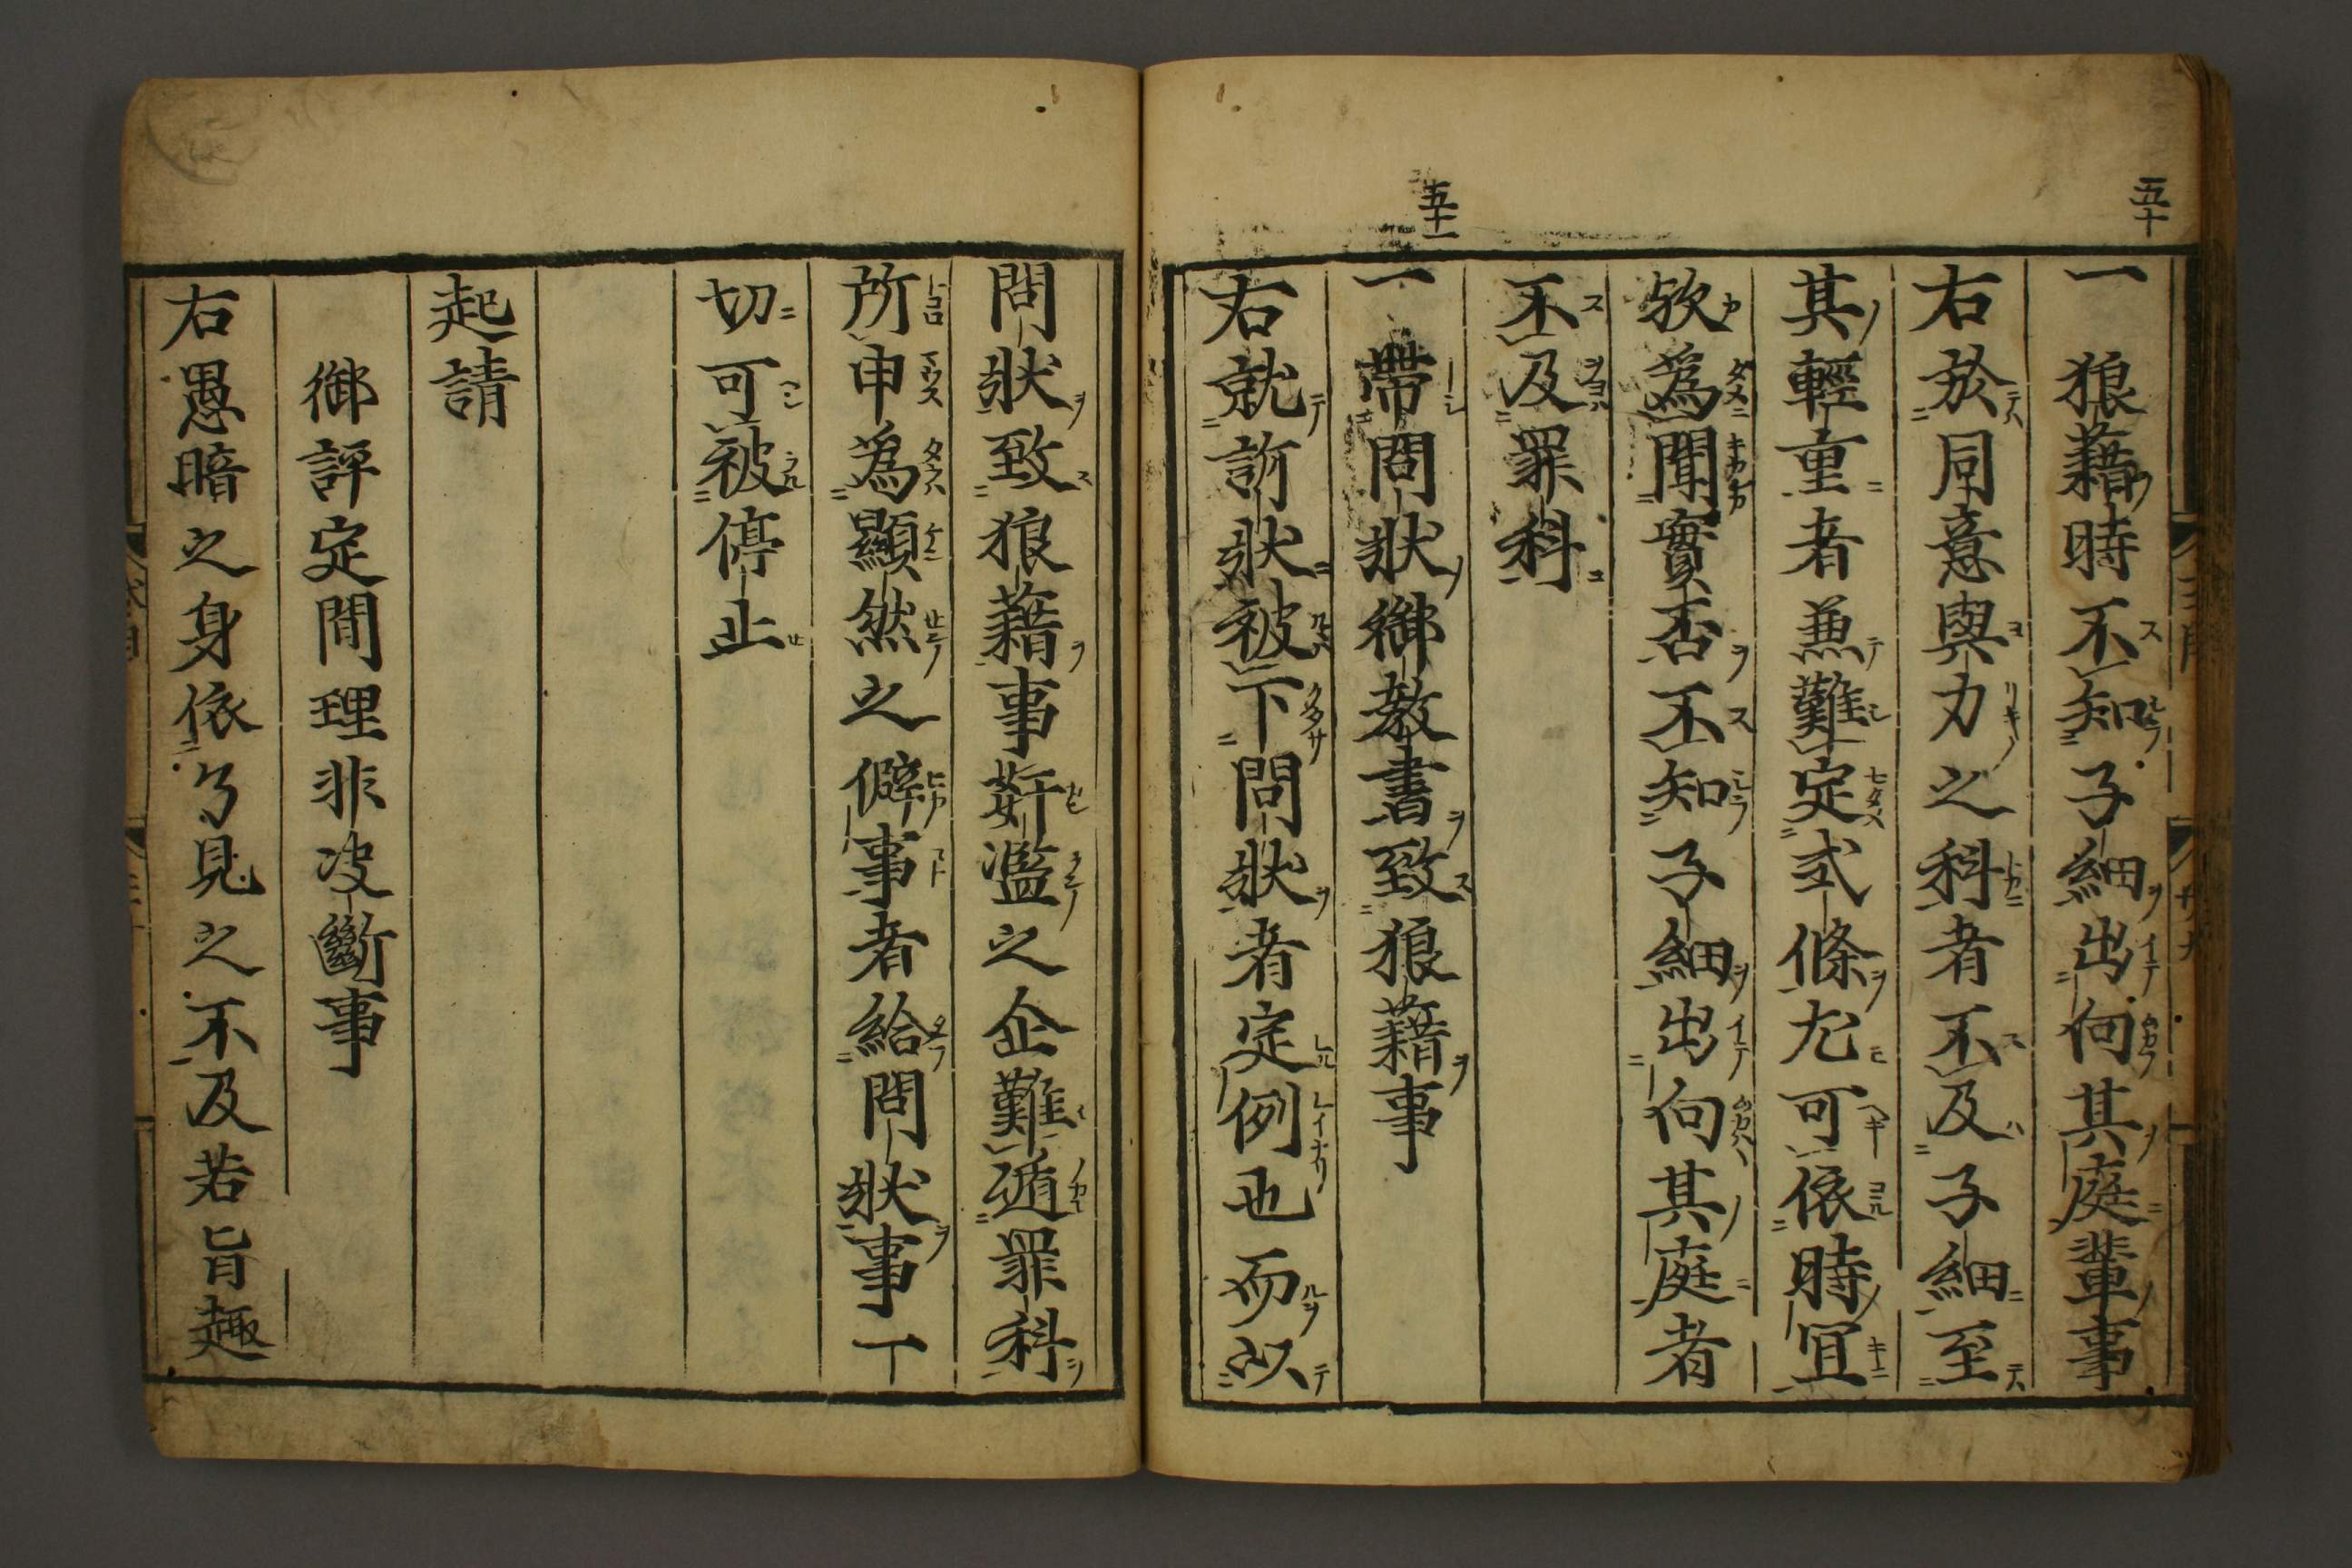 五十
一狼藉時不知子細出向其庭輩事
右於同意與力之科者不及子細至
其輕重者兼難定式條尤可依時冝
欤爲聞實否不知子細出向其庭者
不及罪科
五十一
一帶問狀御教書致狼藉事
右就訴狀被下問狀者定例也而以
問狀致狼藉事姧濫之企難遁罪科
所申爲顯然之僻事者給問狀事一
切可被停止
起請
御評定間理非决斷事
右愚暗之身依了見之不及若旨趣